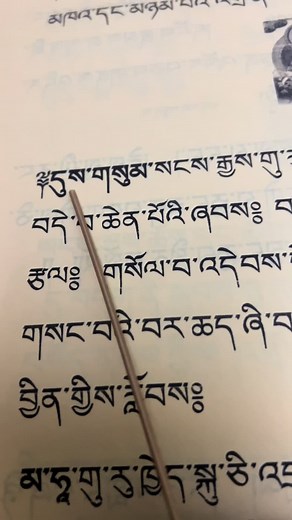 མཁའ་དང་མཉམ་པའི་
༈ དུས་གསུམ་སངས་རྒྱས་གུ་
བདེ་བ་ཆེན་པོའི་ཞབས༔
རྩལ༔ གསོལ་བ་འདེབས་
གསང་བའི་བར་ཆད་ཞི་བ་
བྱིན་གྱིས་རློབས༔
མ་ཧཱ་གུ་རུ་ཁྱེད་སྐུ་ཅི་